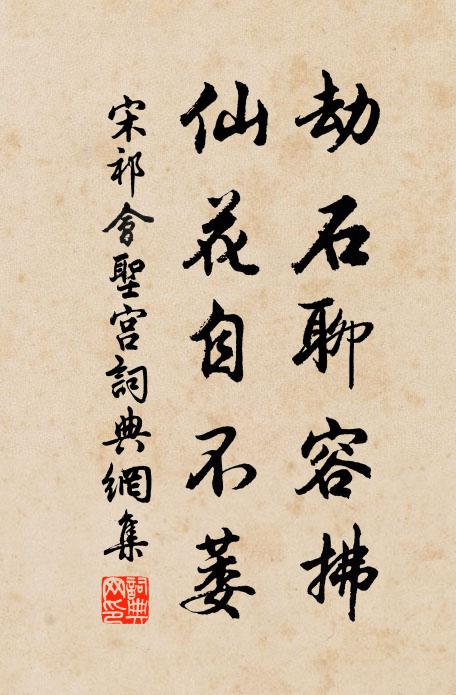 劫石聊容拂
仙花自不萎
宋祁會聖宮詞典網集
詞典網印